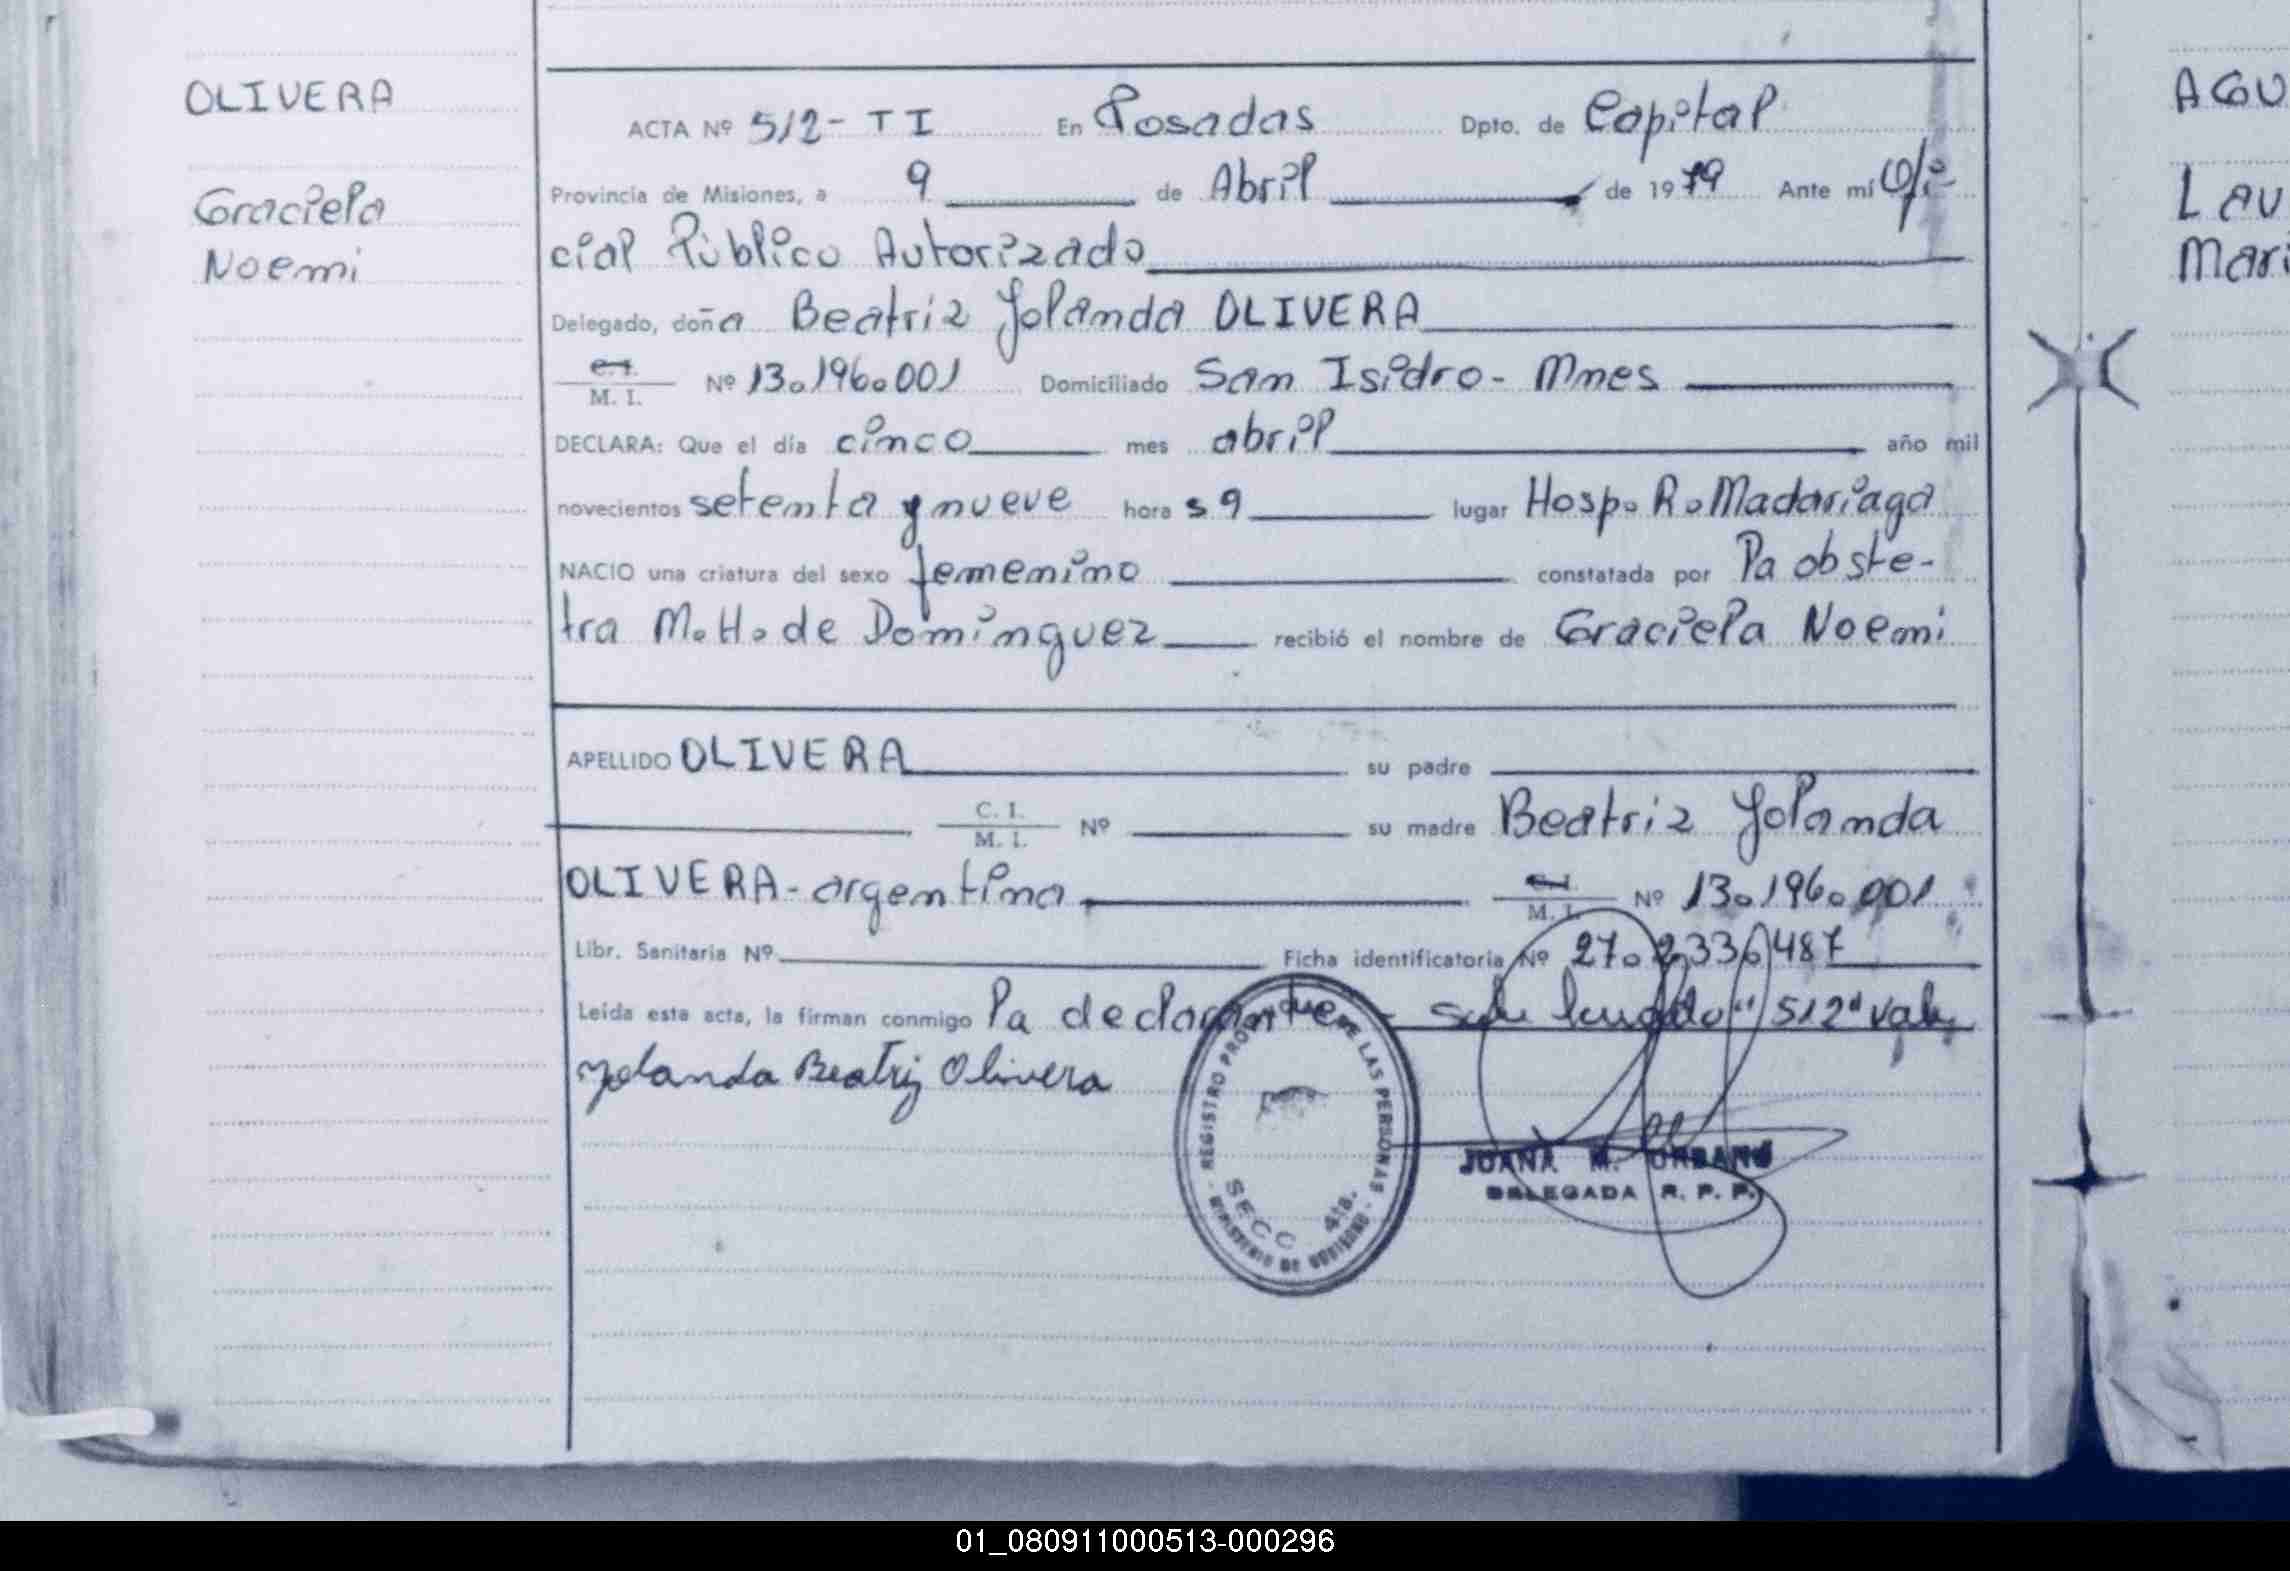 OLIVERA
Graciela
Noemi
ACTA Nº 512- TI En Posadas Dpto. de Capital
Provincia de Misiones, a 9 de Abril de 1979 Ante mí Ofi-
cial Público Autorizado
Delegado, doña Beatriz Yolanda OLIVERA
C.I. / M. I. Nº 13.196.001 Domiciliado San Isidro - Mnes
DECLARA: Que el día cinco mes abril año mil
novecientos setenta y nueve hora s 9 lugar Hosp. R. Madariaga
NACIO una criatura del sexo femenino constatada por la obste-
tra M. H. de Dominguez recibió el nombre de Graciela Noemi
APELLIDO OLIVERA su padre
C. I. / M. I. Nº su madre Beatriz Yolanda
OLIVERA - argentina C.I. / M. I. Nº 13.196.001
Libr. Sanitaria Nº Ficha identificatoria Nº 27.2336487
Leída esta acta, la firman conmigo la declarante - "512" vale
Yolanda Beatriz Olivera
REGISTRO PROVINCIAL DE LAS PERSONAS - MINISTERIO DE GOBIERNO -
SECC 4ta.
JUANA M. URBANO
DELEGADA R. P. P.
AGU
LAU
Mari
01_080911000513-000296